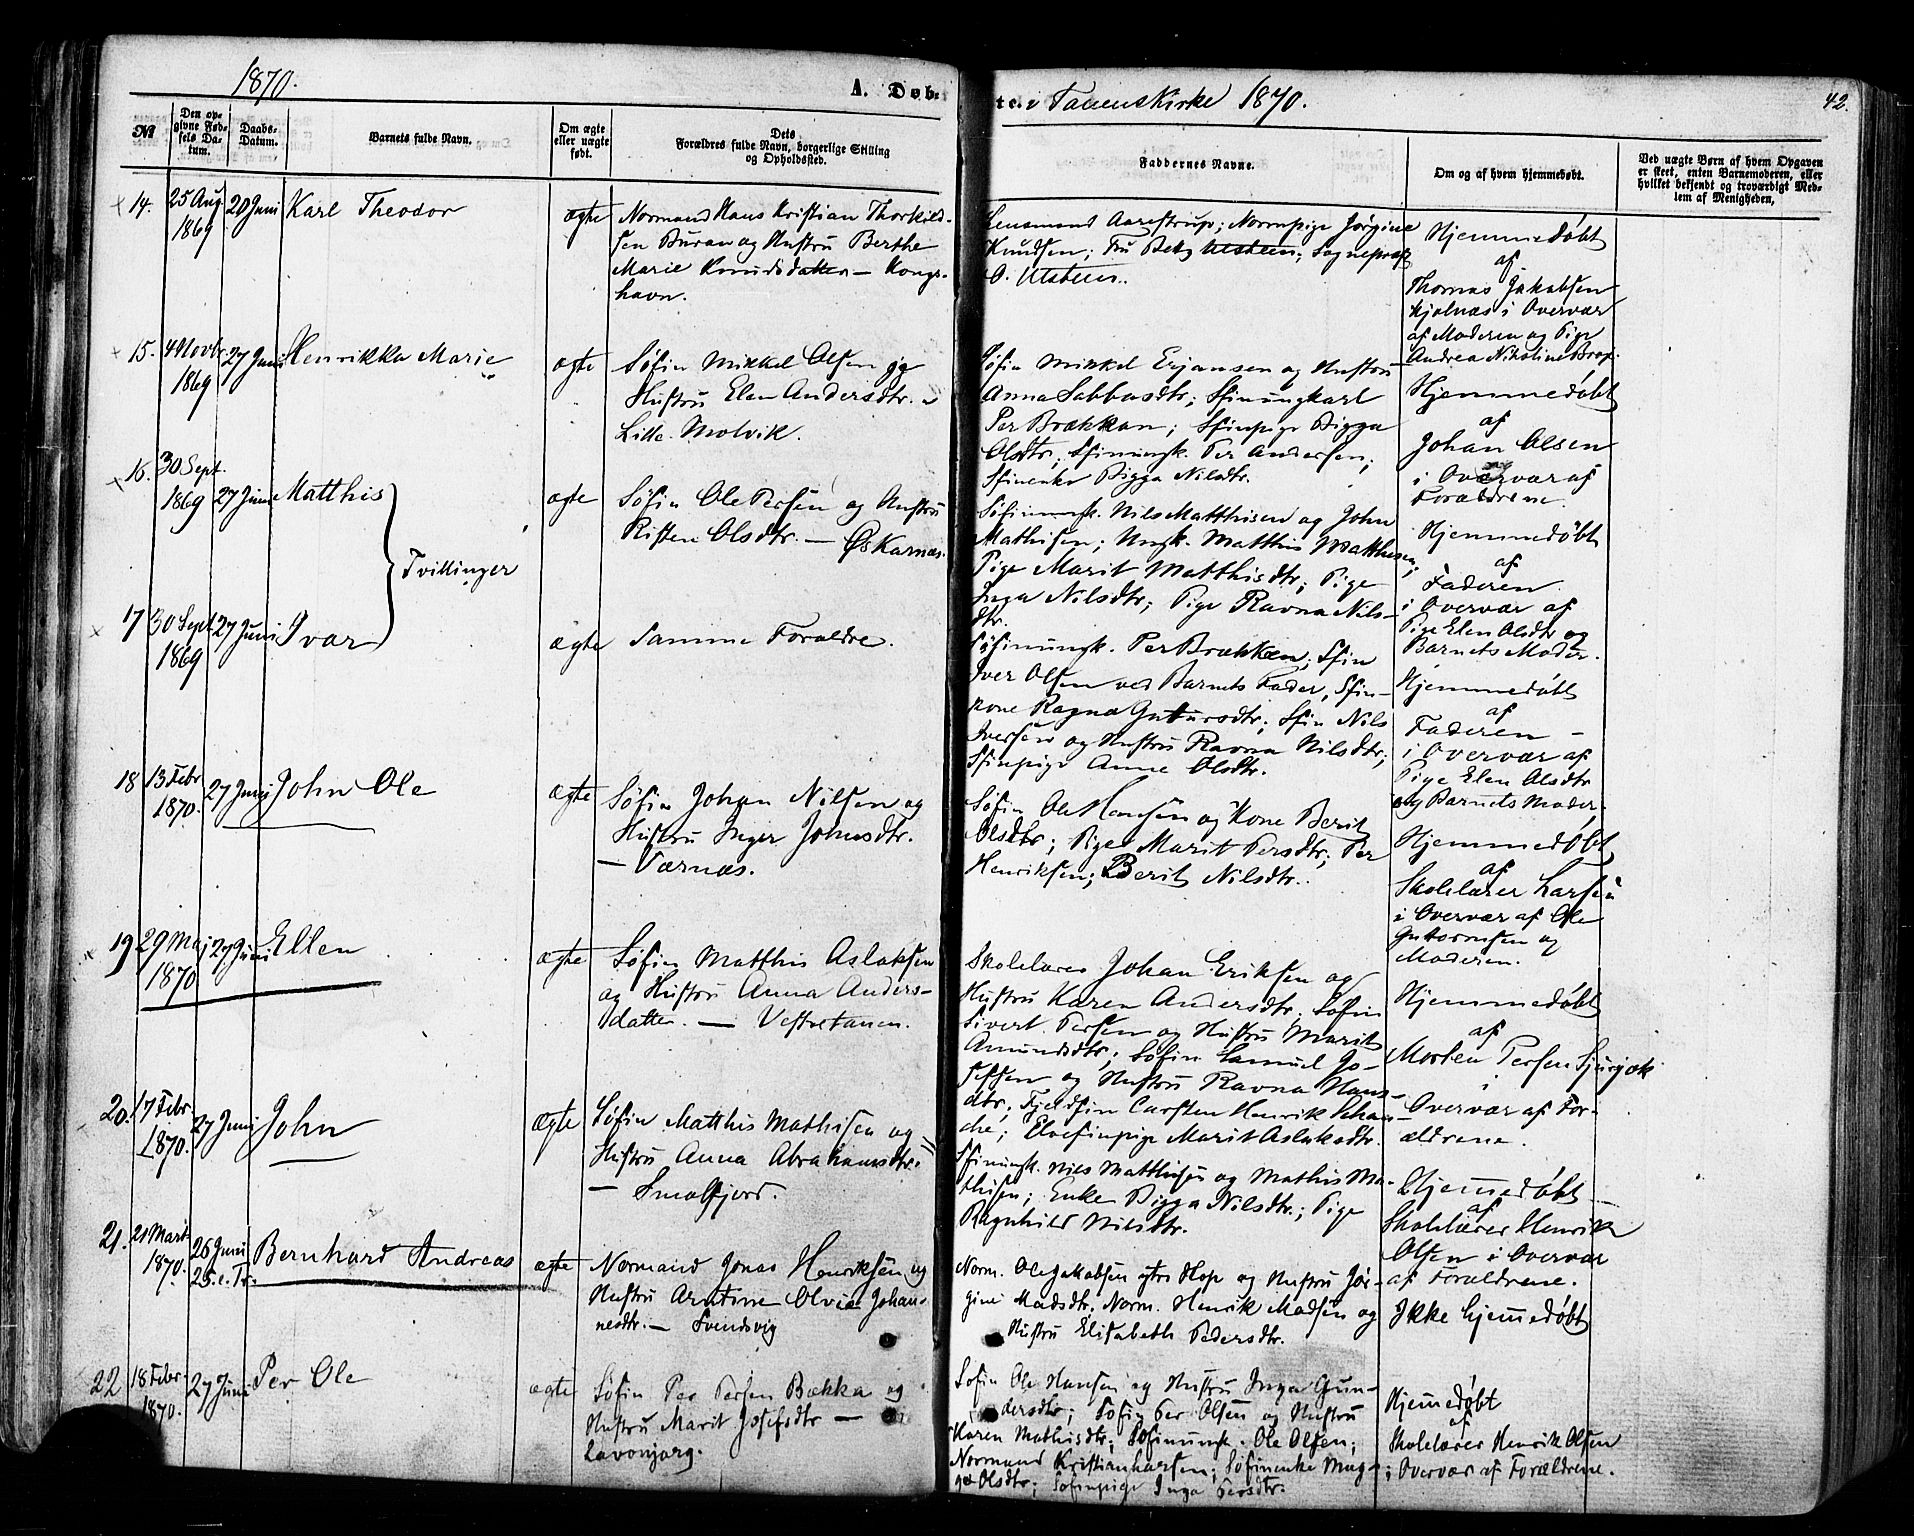 1870.
A. Døb-
№
Den op-
givne Fød-
sels Da-
tum.
Daabs-
Datum.
Barnets fulde Navn.
Om ægte
eller uægte
født.
Dets
Forældres fulde Navn, borgerlige Stilling
og Opholdssted.
14. 25 Aug 1869 20 Juni Karl Theodor
ægte
Normand Hans Kristian Thorkild-
sen Buran og Hustru Berthe
Marie Knudsdatter — Kongs-
havn.
15. 4 Novbr. 1869 27 Juni Henrikka Marie
ægte
Søfin Mikkel Olsen og
Hustru Elen Andersdtr. -
Lille-Molvik.
16. 30 Sept. 1869 27 Juni Matthis
ægte
Søfin Ole Persen og Hustru
Risten Olsdtr. — Øskarnæs.
Tvillinger
17 30 Sept. 1869 27 Juni Ivar
ægte
Samme Forældre.
18 13 Febr 1870. 27 Juni John Ole
ægte
Søfin Johan Nilsen og
Hustru Inger Johnsdtr.
— Værnæs.
19 29 Maj 1870 27 Juni Ellen
ægte
Søfin Matthis Aslaksen
og Hustru Anna Anders-
datter. — Vestretanen.
20. 17 Febr. 1870. 27 Juni John
ægte
Søfin Matthis Mathisen og
Hustru Anna Abrahamsdtr.
— Smalfjord.
21. 21 Marts 1870. 26 Juni 2 S. e. Tr. Bernhard Andreas
ægte
Normand Jonas Henriksen og
Hustru Arntine Olvia Johan-
nesdtr. — Svendsvig
22 18 Febr. 1870. 27 Juni Per Ole
ægte
Søfin Per Persen Bækka og
Hustru Marit Josefsdtr —
Lavonjarg.
te. i Tanens Kirke 1870.
42.
Faddernes Navne.
Om og af hvem hjemmedøbt.
Ved uægte Børn af hvem Opgaven
er skeet, enten Barnemoderen, eller
hvilket bekjendt og troværdigt Med-
lem af Menigheden,
Lensmand Aarestrup; Normpige Jørgine
Knudsen; Fru Betzy Utsteen; Sognepræst
O. Utsteen.
Hjemmedøbt
af
Thomas Jakobsen
Kjølnæs i Overvær
af Moderen og Pige
Andrea Nikoline Brop.
Søfin Mikkel Erjansen og Hustru
Anna Sabbasdtr; Sfinungkarl
Per Brækkan; Sfinpige Bigga
Olsdtr; Sfinungk. Per Andersen;
Sfinenke Bigga Nilsdtr.
Hjemmedøbt
af
Johan Olsen
i Overvær af
Forældrene.
Søfinungk. Nils Matthisen og John
Mathisen; Ungk. Matthis Matthisen;
Pige Marit Matthisdtr; Pige
Inga Nilsdtr; Pige Ravna Nils-
dtr.
Hjemmedøbt
af
Faderen
i Overvær af
Pige Elen Olsdtr og
Barnets Moder.
Søfinungk. Per Brækken; Sfin
Iver Olsen ved Barnets Fader, Sfin-
kone Ragna Guttursdtr; Sfin Nils
Iversen og Hustru Ravna Nilsdtr;
Sfinpige Anne Olsdtr.
Hjemmedøbt
af
Faderen -
i Overvær af
Pige Elen Olsdtr
og Barnets Moder.
Søfin Ole Hansen og Kone Berit
Olsdtr; Pige Marit Persdtr; Per
Henriksen; Berit Nilsdtr.
Hjemmedøbt
af
Skolelærer Larsen
i Overvær af Ole
Guttormsen og
Moderen.
Skolelærer Johan Eriksen og
Hustru Karen Andersdtr. Søfin
Sivert Persen og Hustru Marit
Amundsdtr; Søfin Samuel Jo-
sefsen og Hustru Ravna Hans-
dtr. Fjeldfin Carsten Henrik Schan-
che; Elvefinpige Marit Aslaksdtr.
Hjemmedøbt
af
Morten Persen Sjursjok
i
Overvær af For-
ældrene.
Sfinungk. Nils Matthisen og Mathis Ma-
thisen; Enke Bigga Nilsdtr.; Pige
Ragnhild Nilsdtr.
Hjemmedøbt
af
Skolelærer Henrik
Olsen i Overvær
af Forældrene.
Norm. Ole Jakobsen ytre Hop og Hustru Jør-
gine Madsdtr. Norm. Henrik Madsen og
Hustru Elisabeth Pedersdtr.
Ikke hjemmedøbt
Søfin Ole Hansen og Hustru Inga Gun-
dersdtr; Søfin Per Olsen og Hustru
Karen Mathisdtr; Søfinungk. Ole Olsen;
Normand Kristian Larsen; Søfinenke Mag-
ga Olsdtr; Søfinpige Inga Persdtr.
Hjemmedøbt
af
Skolelærer Henrik Olsen
i Overvær af Forældrene.